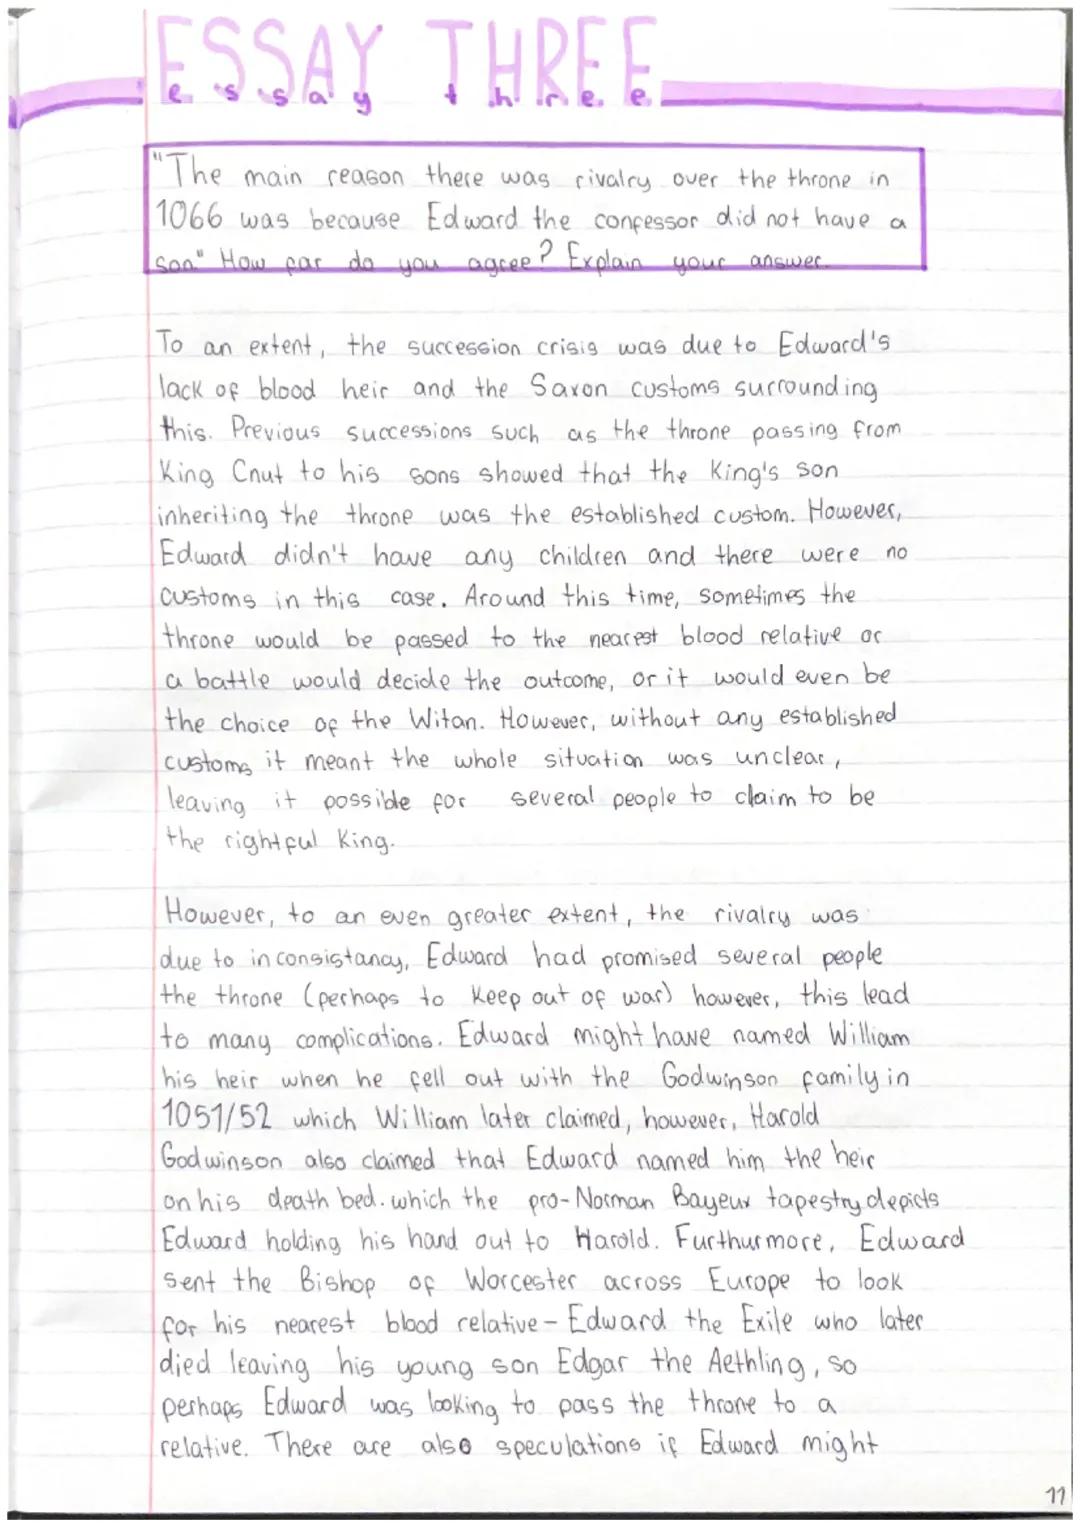 ESSAY THREE
essay three
"The main reason there was rivalry over the throne in
1066 was because Edward the confessor did not have a
son" How far do you agree? Explain your answer.
To an extent, the succession crisis was due to Edward's
lack of blood heir and the Saxon customs surrounding
this. Previous successions such as the throne passing from
King Cnut to his sons showed that the King's son
inheriting the throne was the established custom. However,
Edward didn't have any children and there were no
customs in this case. Around this time, sometimes the
throne would be passed to the nearest blood relative or
a battle would decide the outcome, or it would even be
the choice of the Witan. However, without any established
customs it meant the whole situation was unclear,
leaving it possible for several people to claim to be
the rightful King.
However, to an even greater extent, the rivalry was
due to inconsistancy, Edward had promised several people
the throne (perhaps to keep out of war) however, this lead
to many complications. Edward might have named William
his heir when he fell out with the Godwinson family in
1051/52 which William later claimed, however, Harold
Godwinson also claimed that Edward named him the heir
on his death bed. which the pro-Norman Bayeux tapestry depicts
Edward holding his hand out to Harold. Furthurmore, Edward
sent the Bishop of Worcester across Europe to look
for his nearest blood relative - Edward the Exile who later
died leaving his young son Edgar the Aethling, so
perhaps Edward was looking to pass the throne to a
relative. There are also speculations if Edward might
11